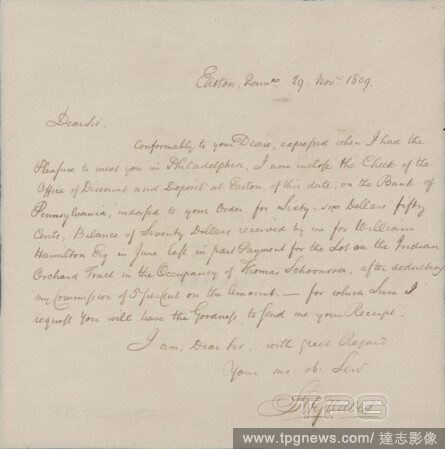 Easton, Penna. 29. Novr. 1809.
Dear Sir.
Conformably to your Desire, expressed when I had the
Pleasure to meet you in Philadelphia, I now inclose the Check of the
Office of Discount and Deposit at Easton, of this date, on the Bank of
Pennsylvania, indorsed to your Order, for Sixty-six Dollars fifty
Cents, Balance of Seventy Dollars received by me for William
Hamilton Esq. in June last, in part Payment for the Lot on the Indian
Orchard Tract in the Occupancy of Thomas Schoonover, after deducting
my Commission of 5 per cent on the Amount. — for which Sum I
request You will have the Goodness to send me your Receipt.
I am, Dear Sir, with great Regard
Your mo. ob. Serv.
TPG
www.tpgnews.com/達志影像